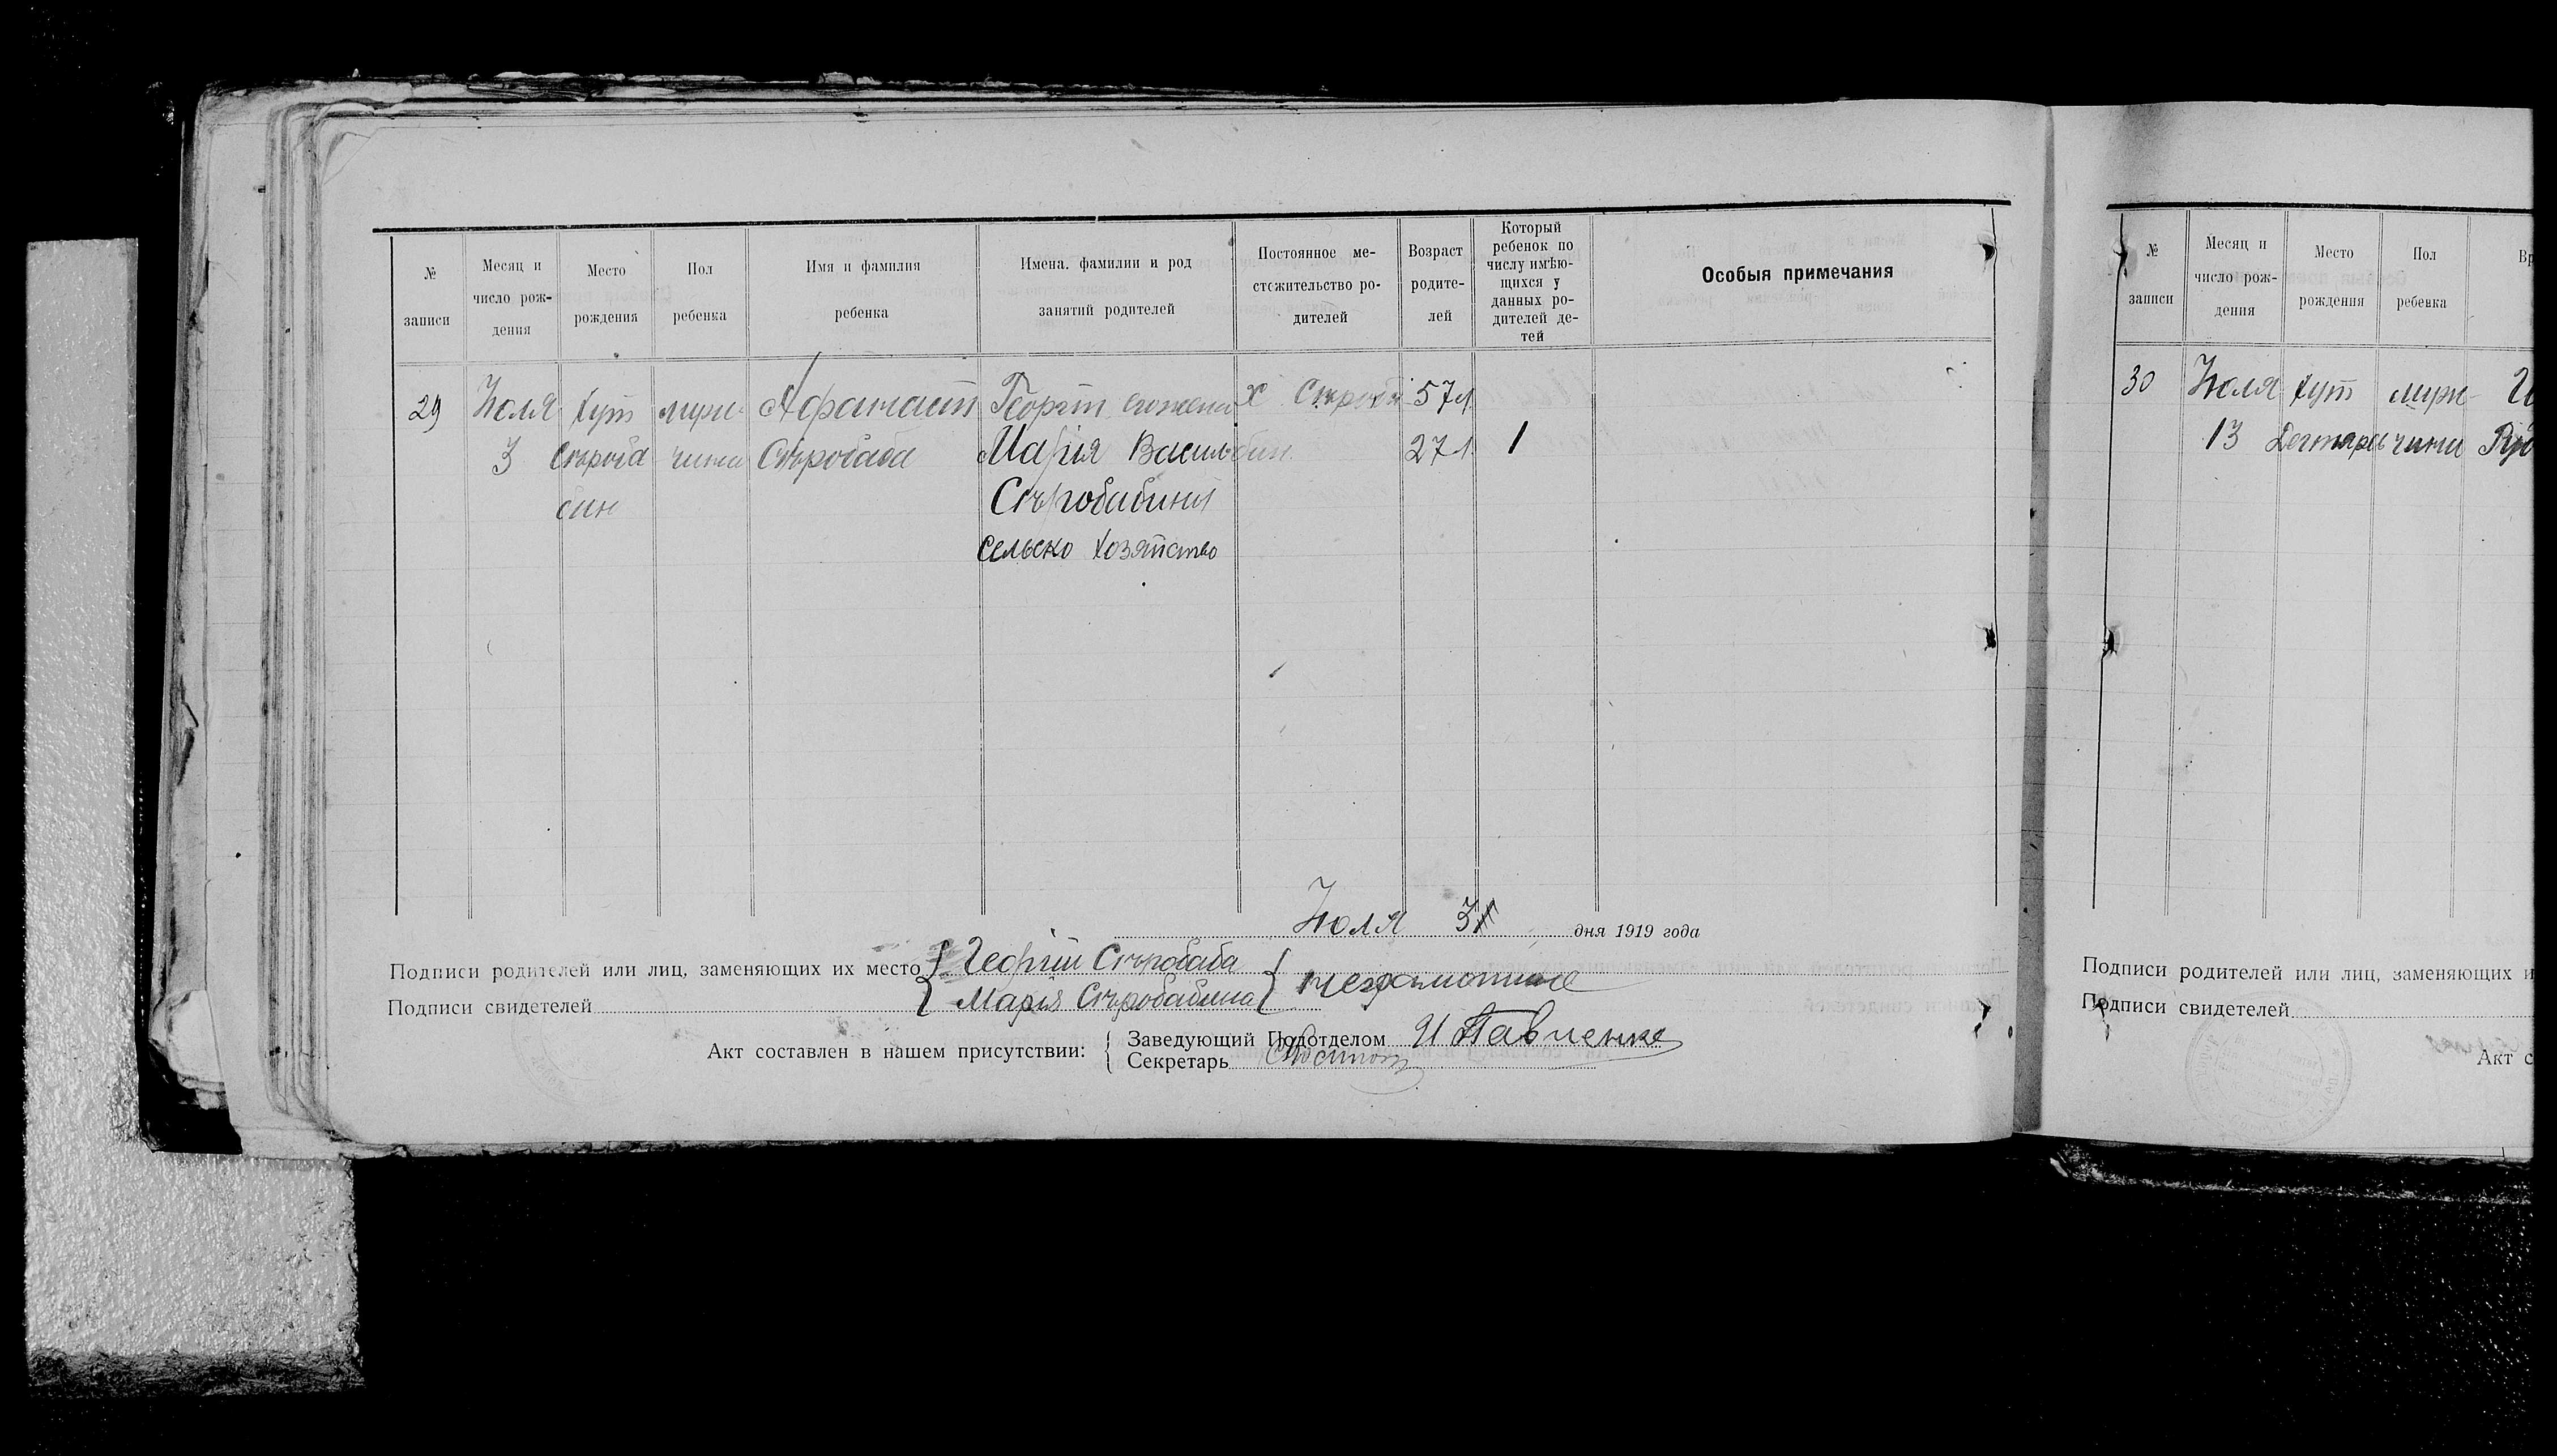 № записи
Месяц и число рож-дения
Место рождения
Пол ребенка
Имя и фамилия ребенка
Имена, фамилии и род занятий родителей
Постоянное ме-стожительство ро-дителей
Возраст родите-лей
Который ребенок по числу имѣю-щихся у данных ро-дителей де-тей
Особыя примечания
29
Июля
3
хут
Сѣроба
бин
муж
чина
Афанасій
Сѣробаба
Георгій его жена
Марія Васильевн.
Сѣробабины
сельско хозяйство
х
57 л.
27 л.
1
Июля 3
дня 1919 года
Подписи родителей или лиц, заменяющих их место
Георгий Сѣробаба
Мария Сѣробабина
неграмотные
Подписи свидетелей
Акт составлен в нашем присутствии:
Заведующий Подотделом И Павленко
Секретарь
№ записи
Месяц и число рож-дения
Место рождения
Пол ребенка
30
Июля
13
хут
муж-
чини
Подписи родителей или лиц, заменяющих и
Подписи свидетелей
Акт с